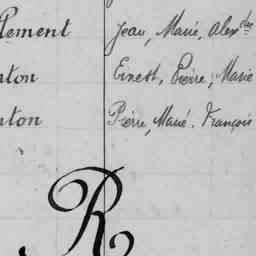 lement Jean, Marie, Alexdre
nton Ernest, Pierre, Marie
nton Pierre, Marie. François
R